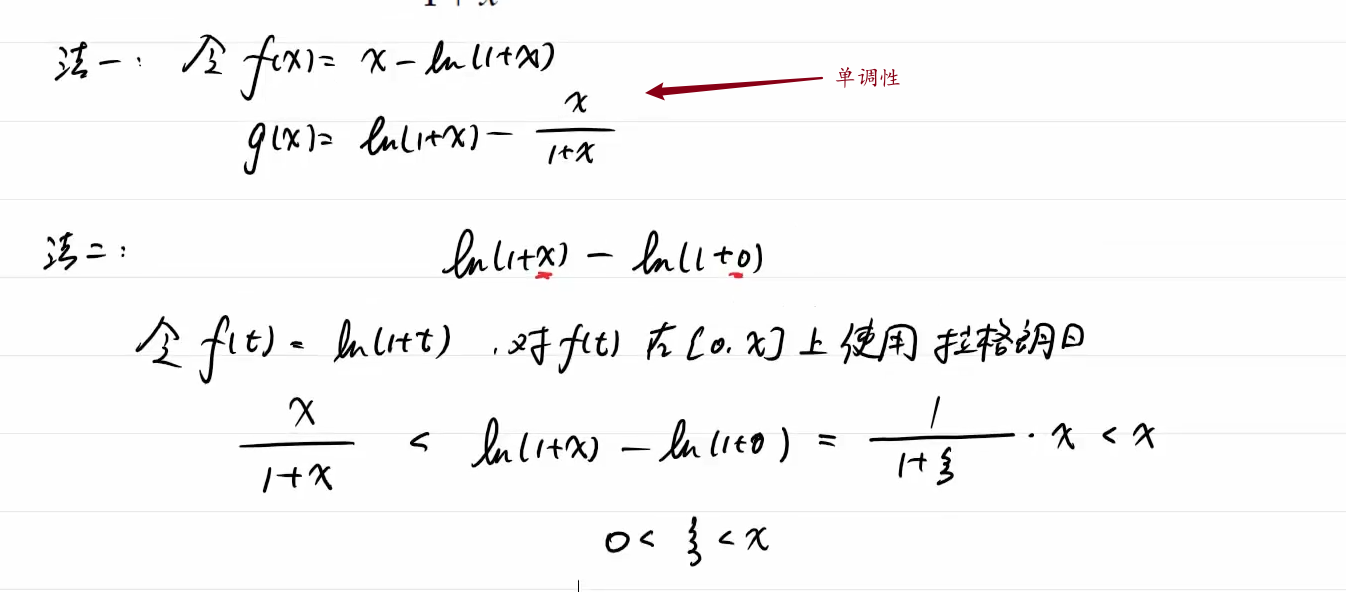 法一: 令 f(x)= x - ln(1+x)
单调性
g(x)= ln(1+x) - x/(1+x)
法二:
ln(1+x) - ln(1+0)
令 f(t) = ln(1+t) , 对 f(t) 在 [0, x] 上 使用 拉格朗日
x/(1+x) < ln(1+x) - ln(1+0) = 1/(1+ξ) · x < x
0 < ξ < x